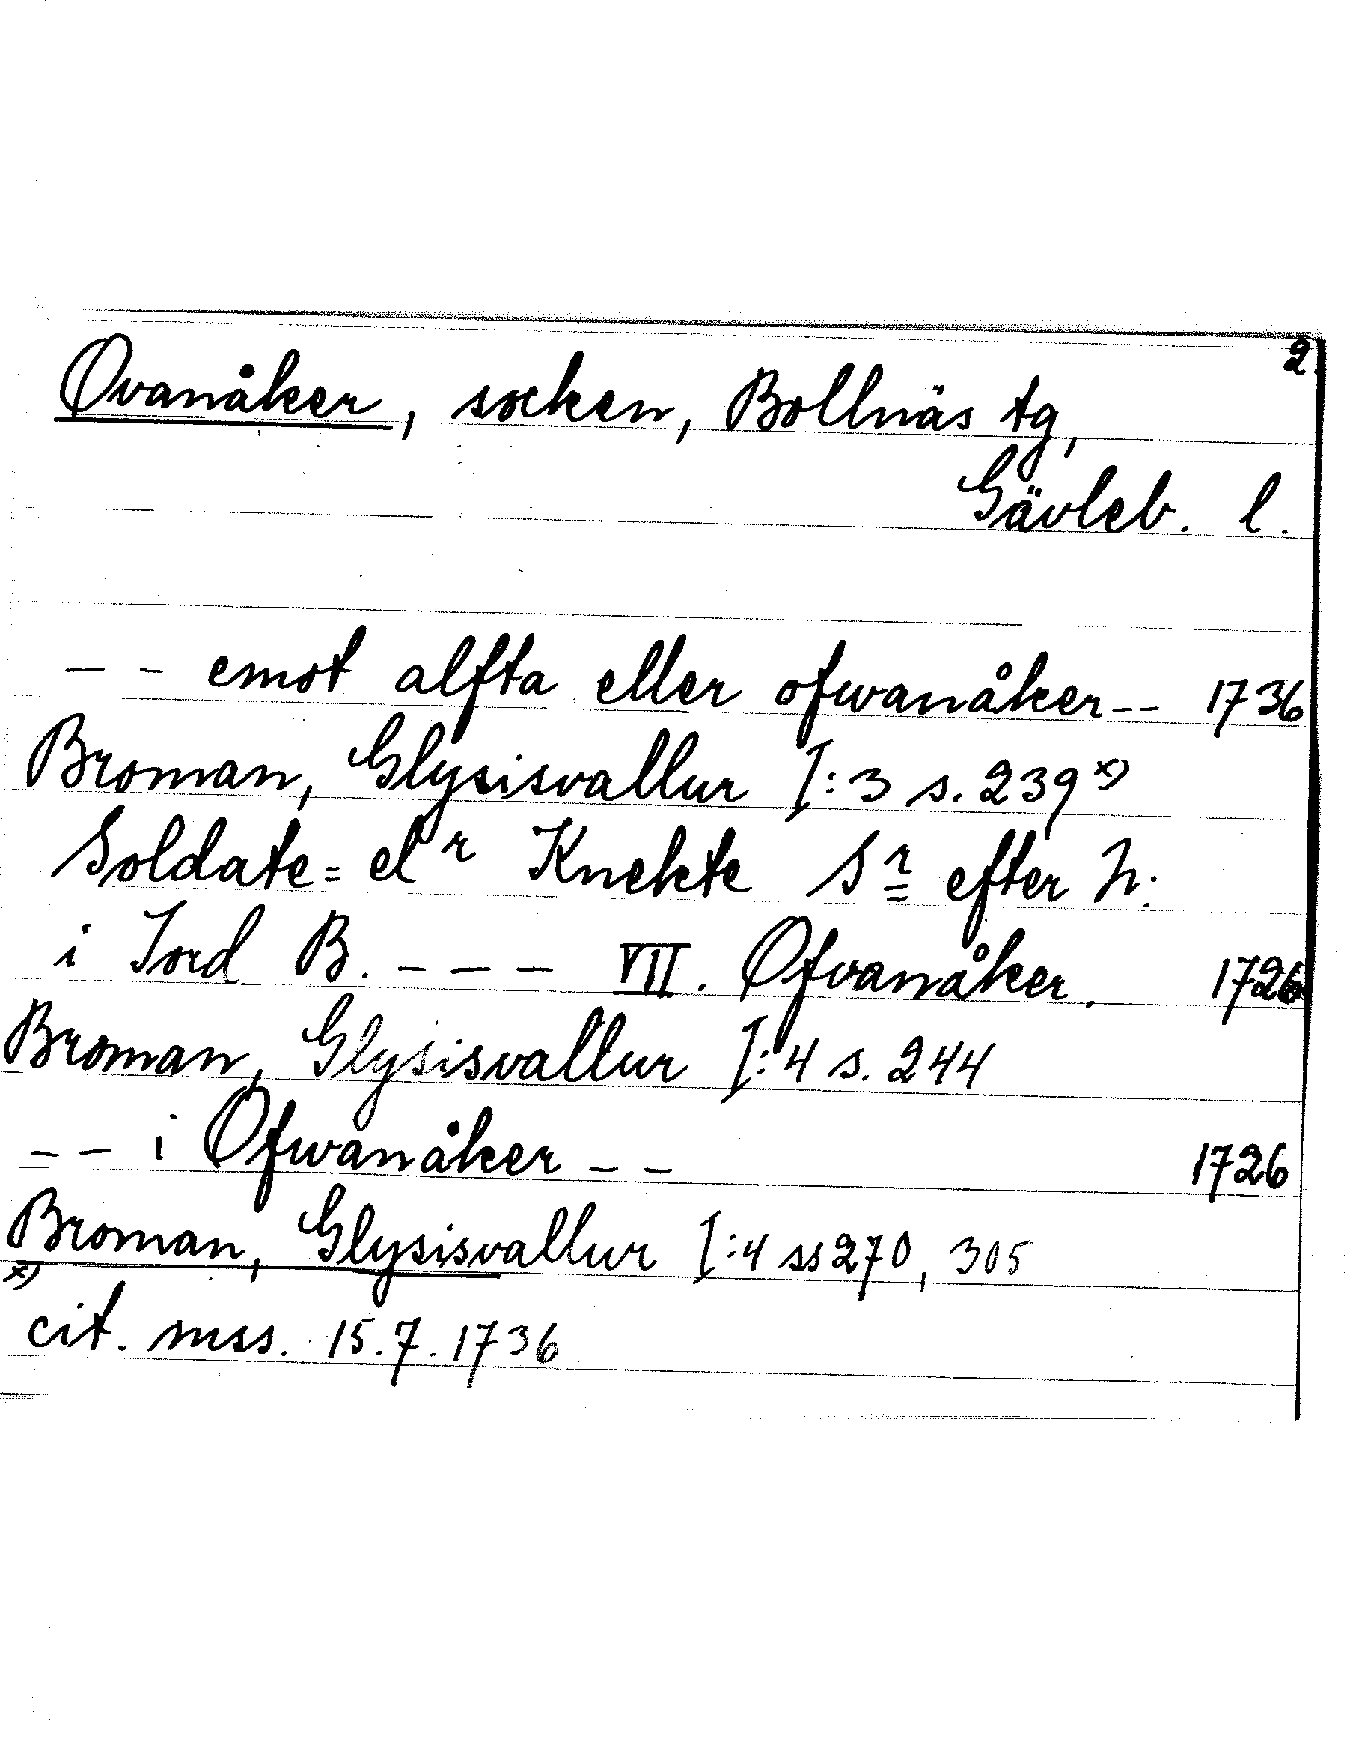 2.
Ovanåker, socken, Bollnäs tg,
Gävleb. l.
-- emot alfta eller ofwanåker-- 1736
Broman, Glysisvallur I:3 s. 239 x)
Soldate= elr Knekte Sr efter h:
i Jord B. --- VII. Ofvanåker. 1726
Broman, Glysisvallur I:4 s. 244
-- i Ofwanåker -- 1726
Broman, Glysisvallur I:4 ss 270, 305
x)
cit. mss. 15.7.1736